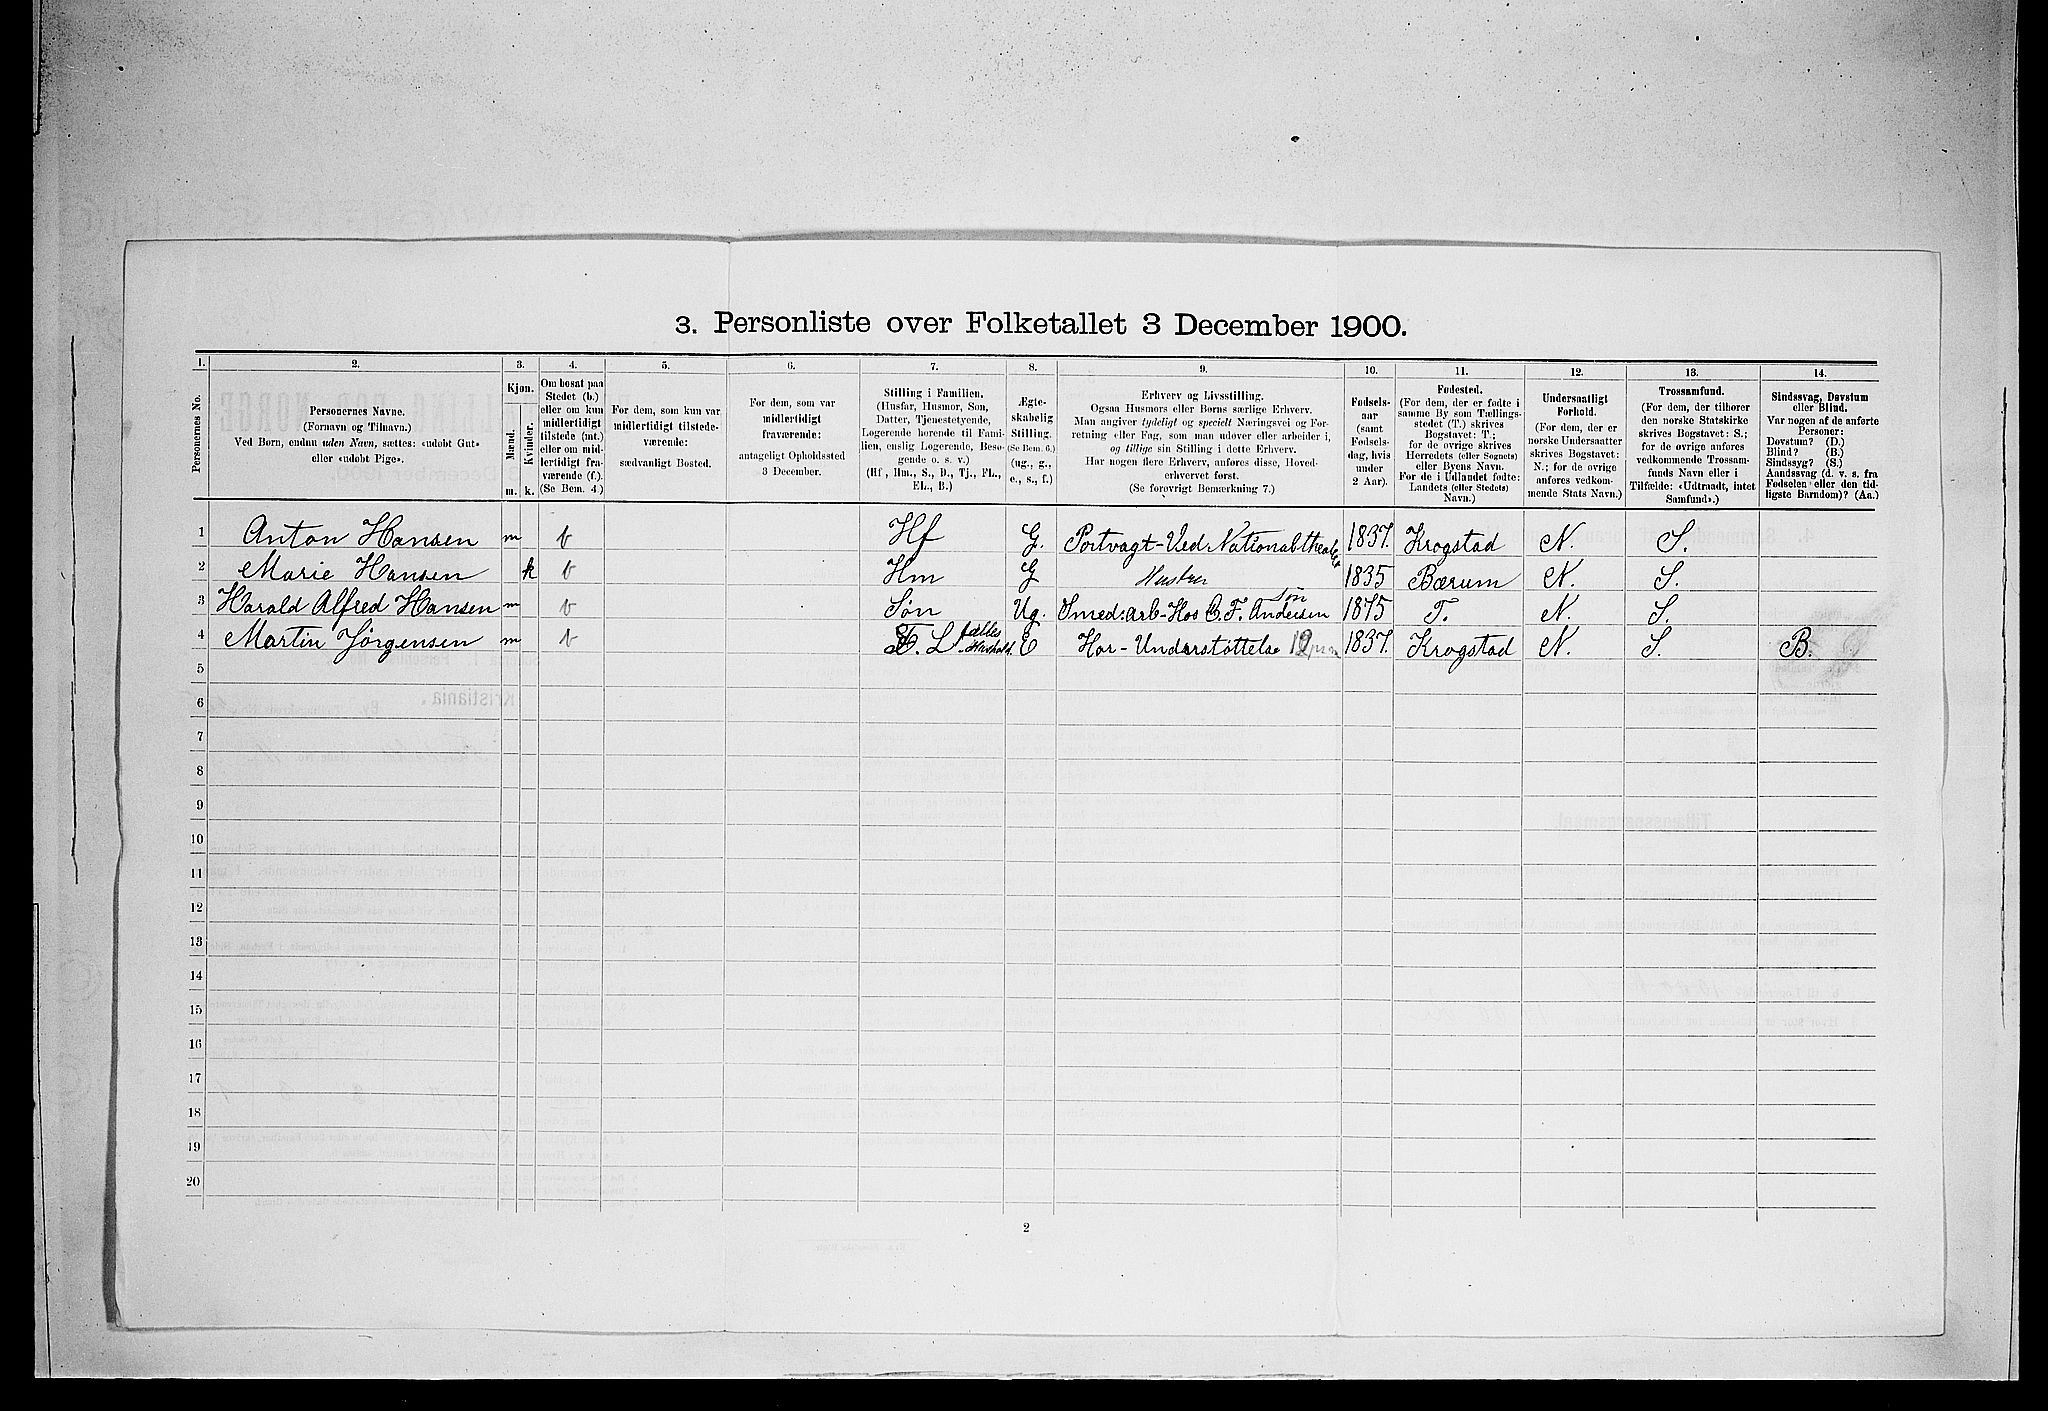 3. Personliste over Folketallet 3 December 1900.
1. 2. 3. 4. 5. 6. 7. 8. 9. 10. 11. 12. 13. 14.
Personernes No.
Personernes Navne.
(Fornavn og Tilnavn.)
Ved Børn, endnu uden Navn, sættes: «udøbt Gut»
eller «udøbt Pige».
Kjøn.
Mænd. Kvinder.
m. k.
Om bosat paa
Stedet (b.)
eller om kun
midlertidigt
tilstede (mt.)
eller om mid-
lertidigt fra-
værende (f.).
(Se Bem. 4.)
For dem, som kun var
midlertidigt tilstede-
værende:
sædvanligt Bosted.
For dem, som var
midlertidigt
fraværende:
antageligt Opholdssted
3 December.
Stilling i Familien.
(Husfar, Husmor, Søn,
Datter, Tjenestetyende,
Logerende hørende til Fami-
lien, enslig Logerende, Besø-
gende o. s. v.)
(Hf., Hm., S., D., Tj., FL.,
EL., B.)
Ægte-
skabelig
Stilling.
(Se Bem. 6.)
(ug., g.,
e., s., f.)
Erhverv og Livsstilling.
Ogsaa Husmors eller Børns særlige Erhverv.
Man angiver tydeligt og specielt Næringsvei og For-
retning eller Fag, som man udøver eller arbeider i,
og tillige sin Stilling i dette Erhverv.
Har nogen flere Erhverv, anføres disse, Hoved-
erhvervet først.
(Se forøvrigt Bemærkning 7.)
Fødsels-
aar
(samt
Fødsels-
dag, hvis
under
2 Aar).
Fødested.
(For dem, der er fødte i
samme By som Tællings-
stedet (T.) skrives
Bogstavet: T.;
for de øvrige skrives
Herredets (eller Sognets)
eller Byens Navn.
For de i Udlandet fødte:
Landets (eller Stedets)
Navn.)
Undersaatligt
Forhold.
(For dem, der er
norske Undersaatter
skrives Bogstavet:
N.; for de øvrige
anføres vedkom-
mende Stats Navn.)
Trossamfund.
(For dem, der tilhører
den norske Statskirke
skrives Bogstavet: S.;
for de øvrige anføres
vedkommende Trossam-
funds Navn eller i
Tilfælde: «Udtraadt, intet
Samfund».)
Sindssvag, Døvstum
eller Blind.
Var nogen af de anførte
Personer:
Døvstum? (D.)
Blind? (B.)
Sindssyg? (S.)
Aandssvag (d. v. s. fra
Fødselen eller den tid-
ligste Barndom)? (Aa.)
1 Anton Hansen m b Hf G. Portvagt-Ved Nationaltheatret 1837. Krogstad N. S.
2 Marie Hansen k b Hm G Hustru 1835 Bærum N. S.
3 Harald Alfred Hansen m b Søn Ug. Smed: arb-Hos C. F. Andersen Søn 1875 T. N. S.
4 Martin Jørgensen m b F. L. fælles Hushold. E Har-Understøttelse 1837. Krogstad N. S. B.
5
6
7
8
9
10
11
12
13
14
15
16
17
18
19
20
2